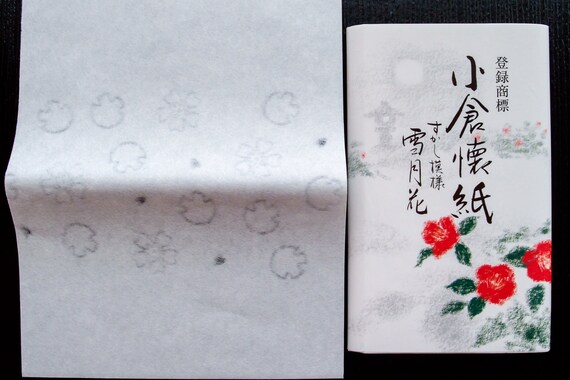 登録商標
小倉懐紙
すかし模様
雪月花